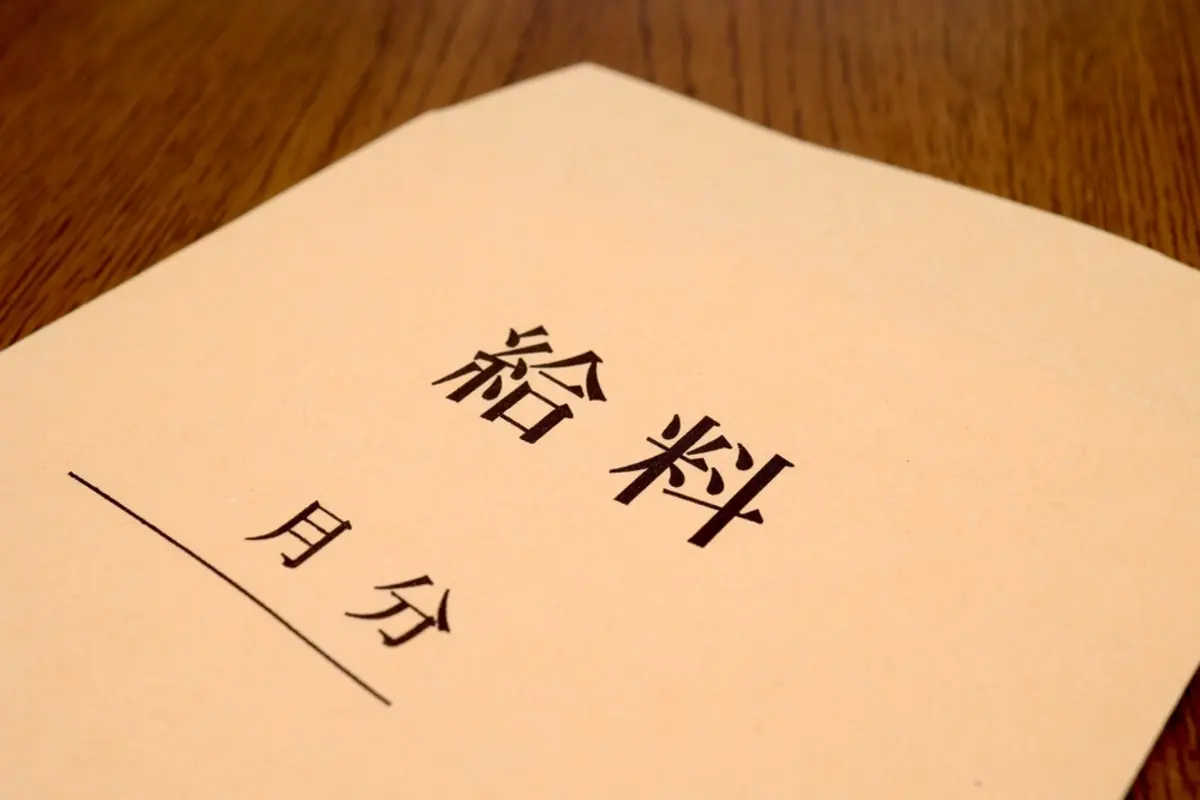 給料
月分